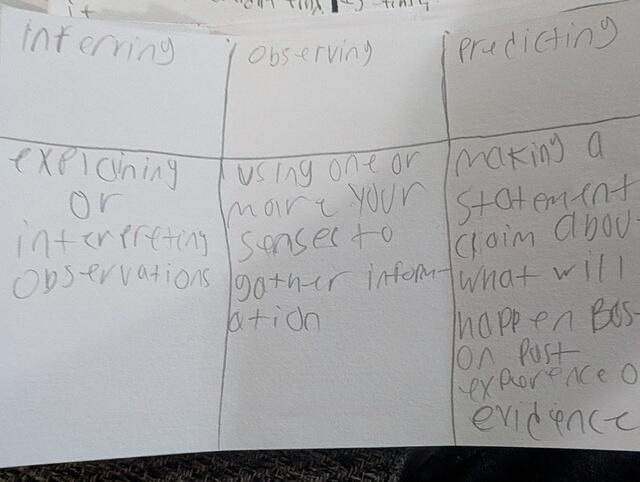 it
inferring
observing
predicting
explaining
or
interpreting
observations
using one or
more your
senses to
gather inform-
ation
making a
statement
claim abou
what will
happen Bas
on past
experence o
evidence